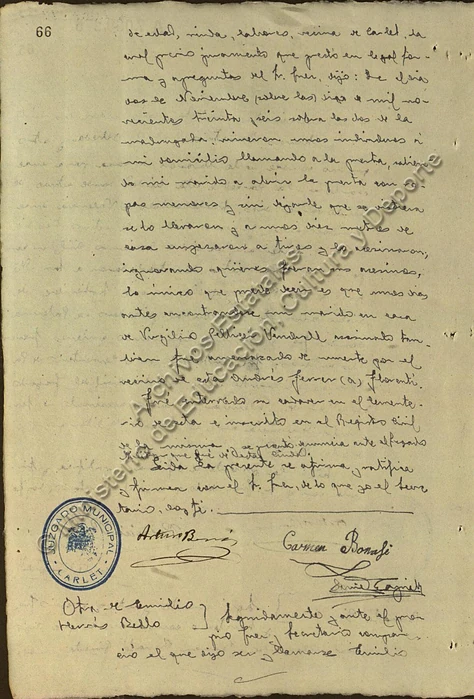 66
de edad, viuda, labores, vecina de Carlet, la
cual previo juramento que prestó en legal for-
ma y a preguntas del Sr. Juez, dijo: Que el día
dos de Noviembre de mil no-
vecientos treinta y seis sobre las dos de la
madrugada, vinieron unos individuos a
mi domicilio llamando a la puerta, salien-
do mi marido a abrir la puerta con
paños menores y sin dejarle que se vistiera
se lo llevaron y a unos diez metros de
casa empezaron a tiros y lo asesinaron,
ignorando quienes fueran los asesinos,
lo único que puedo decir es que unos días
antes encontrándose mi marido en casa
de Virgilio asesinado tam-
bién fue amenazado de muerte por el
vecino de esta Andrés Ferrer (a)
Fue enterrado su cadaver en el cemente-
rio de esta e inscrito en el Registro Civil
de la misma
Leida la presente se afirma y ratifica
y firma con el Sr. Juez, de lo que yo el Secre-
tario, doy fé.
JUZGADO MUNICIPAL
CARLET
Arturo
Carmen
Otra de Emilio
Hervás Bello
Seguidamente y ante el pro-
pio Juez y Secretario compare-
ció el que dijo ser y llamarse Emilio
Archivos Estatales
Ministerio de Educación, Cultura y Deporte